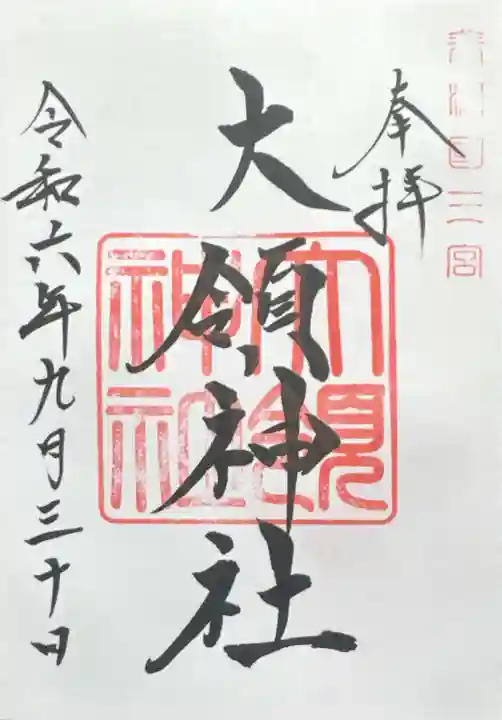 美濃国三宮
奉拝
大領神社
大領神社
令和六年九月三十日